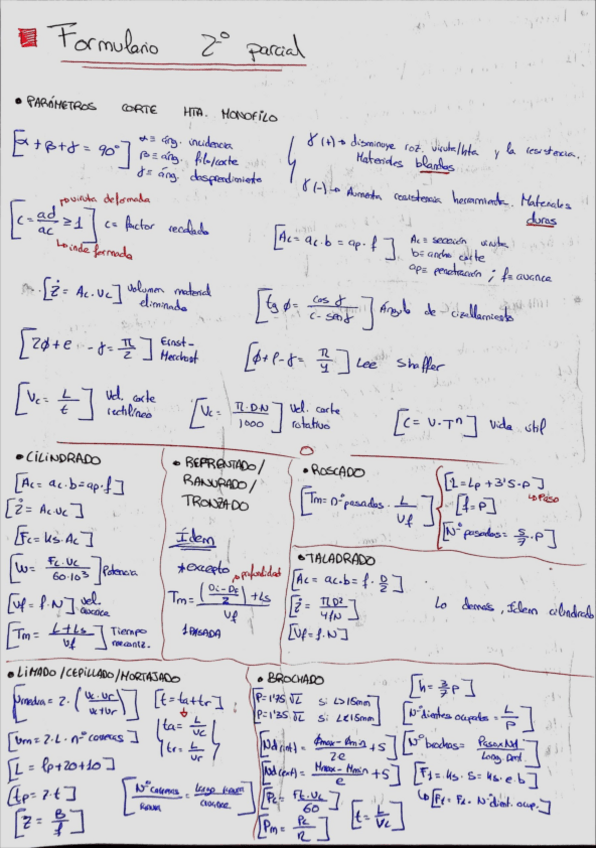 Formulario 2º parcial
• PARÁMETROS CORTE HTA. MONOFILO
[α + β + γ = 90°] α = áng. incidencia
β = áng. filo/corte
γ = áng. desprendimiento
γ (+) → disminuye roz. viruta/hta y la resistencia.
Materiales blandos
γ (-) → Aumenta resistencia herramienta. Materiales
duros
→ viruta deformada
[c = ad/ac ≥ 1] c = factor recalado
↳ indeformada
[Ac = ac.b = ap.f] Ac = sección viruta
b = ancho corte
ap = penetración ; f = avance
[Ż = Ac.Vc] Volumen material
eliminado
[tg φ = cos γ / c - sen γ] Ángulo de cizallamiento
[2φ + e - γ = π/2] Ernst-
Merchant
[φ + ρ - γ = π/4] Lee Shaffer
[Vc = L/t] Vel. corte
rectilíneo
[Vc = π.D.N/1000] Vel. corte
rotativo
[C = V.Tⁿ] Vida útil
• CILINDRADO
[Ac = ac.b = ap.f]
[Ż = Ac.Vc]
[Fc = Ks.Ac]
[W = Fc.Vc/60.10³] Potencia
[Vf = f.N] vel.
avance
[Tm = L+Ls/Vf] Tiempo
mecaniz.
• REFRENTADO/
RANURADO/
TRONZADO
Idem
* excepto
→ profundidad
Tm = (Di-Df/2)+Ls/Vf
1 PASADA
• ROSCADO
[Tm = nº pasadas . L/Vf]
[L = Lp + 3'5.P]
↳ Paso
[f = P]
[Nº pasadas = 5/7.P]
• TALADRADO
[Ac = ac.b = f.D/2]
[Ż = πD²/4 f N]
[Vf = f.N]
Lo demás, Idem cilindrado
• LIMADO/CEPILLADO/MORTAJADO
[Vmedia = 2.(Vc.Vr/Vc+Vr)]
[Vm = 2.L.nº carreras]
[L = lp + 20 + 10]
[tp = z.t]
[z = B/f]
[t = ta + tr]
ta = L/Vc
tr = L/Vr
• BROCHADO
P = 1'75 √L si L > 15mm
P = 1'35 √L si L < 15mm
[Nd(int) = Φmax - Φmin/2e + 5]
[Nd(ext) = Hmax - Hmin/e + 5]
[Pc = Ft.Vc/60]
[Pm = Pc/η]
[t = L/Vc]
[Nº dientes ocupados = L/P]
[F1 = Ks.S = Ks.e.b]